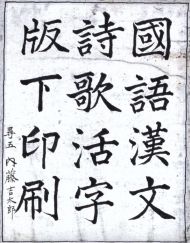 國語漢文
詩歌活字
版下印刷
尋五内藤吉太郎